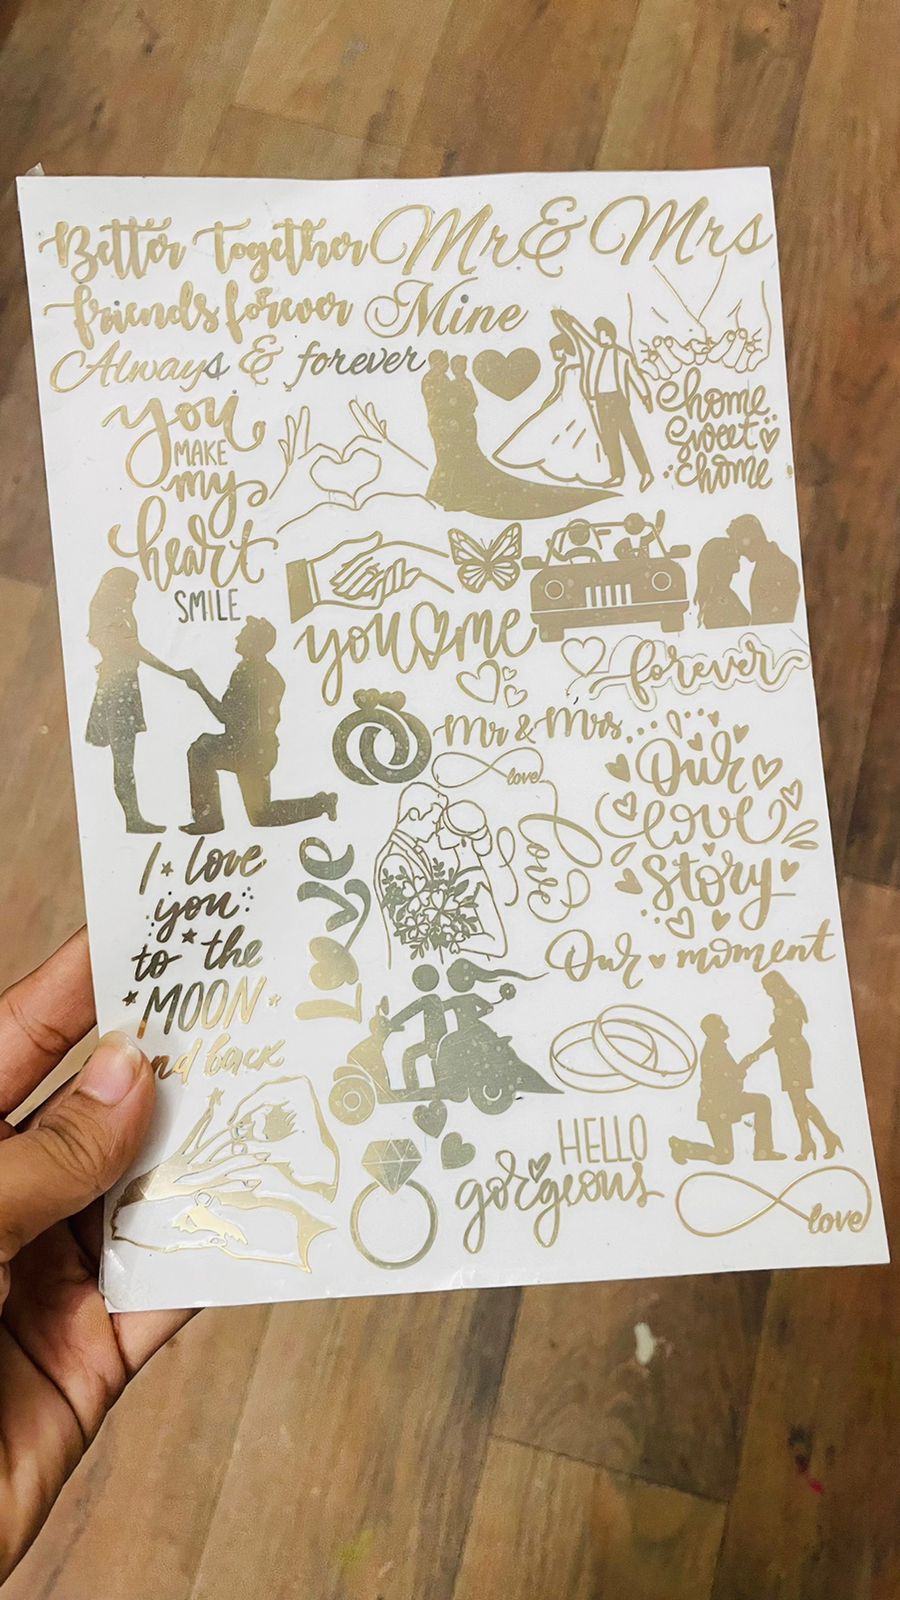 Better Together
Mr & Mrs
friends forever
Mine
Always & forever
home
sweet
home
you
MAKE
my
heart
SMILE
you me
forever
Mr & Mrs
love
Our
love
story
love
Love
I love
you
to the
MOON
nd back
Our moment
HELLO
gorgeous
love